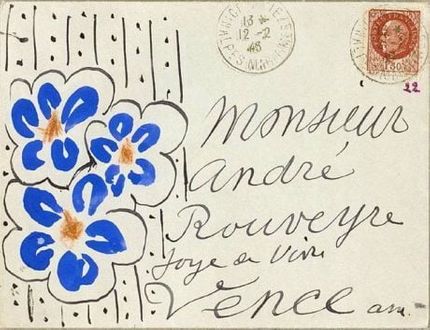 13
12 -2
43
1F50
22
Monsieur
André
Rouveyre
Joye de Vivre
Vence am.